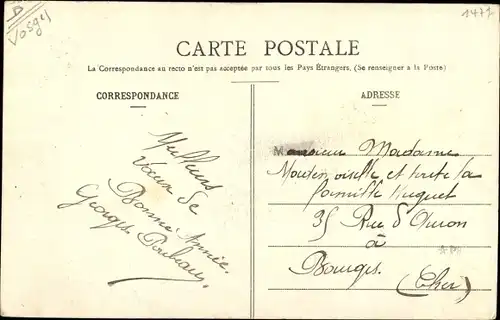 Vosges
1477
CARTE POSTALE
La Correspondance au recto n'est pas acceptée par tous les Pays Étrangers. (Se renseigner a la Poste)
CORRESPONDANCE
Meilleurs
Vœux de
Bonne Année.
Georges
ADRESSE
Monsieur Madame
et toute la
famille Huguet
35 Rue d'Auron
à
Bourges.
(Cher)